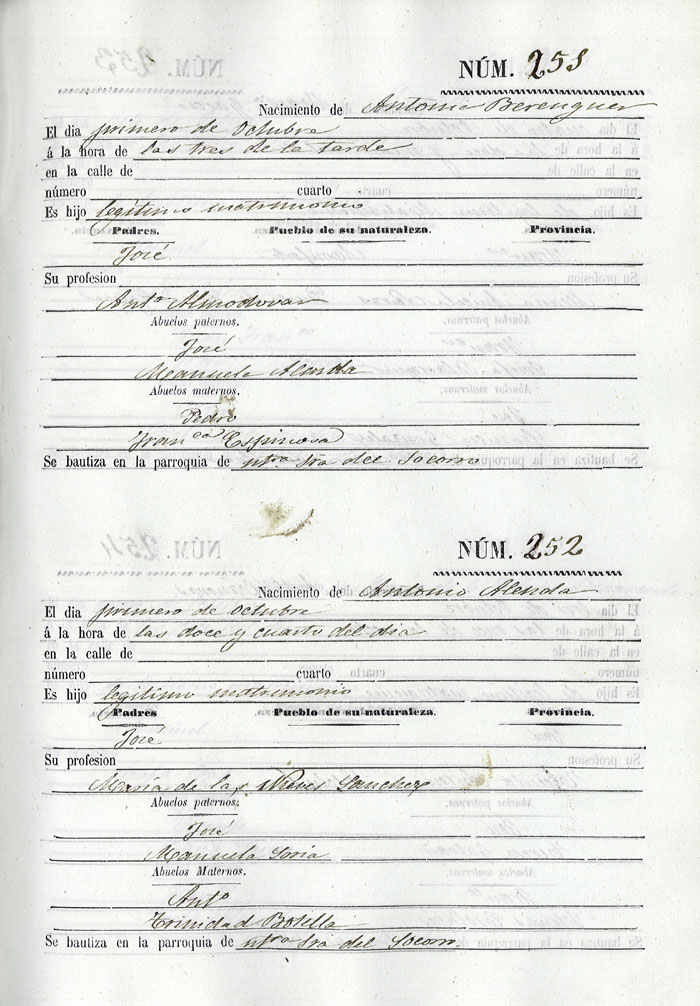 NÚM. 251
Nacimiento de Antonio Berenguer
El dia primero de Octubre
á la hora de las tres de la tarde
en la calle de
número cuarto
Es hijo legitimo matrimonio
Padres. Pueblo de su naturaleza. Provincia.
José
Su profesion
Antª Almodovar
Abuelos paternos.
José
Manuela Alenda
Abuelos maternos.
Pedro
Franca Espinosa
Se bautiza en la parroquia de ntra Sra del Socorro
NÚM. 252
Nacimiento de Antonio Alenda
El dia primero de Octubre
á la hora de las doce y cuarto del dia
en la calle de
número cuarto
Es hijo legitimo matrimonio
Padres Pueblo de su naturaleza. Provincia.
José
Su profesion
Maria de las Nieves Sanchez
Abuelos paternos.
José
Manuela Soria
Abuelos Maternos.
Antº
Trinidad Botella
Se bautiza en la parroquia de ntra Sra del Socorro.